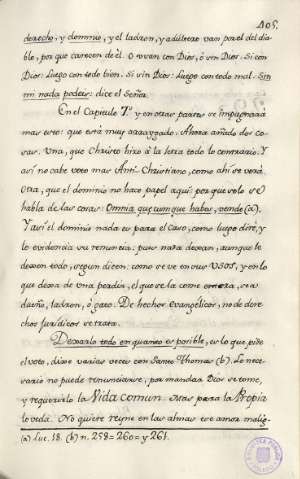 405.
derecho, y dominio, y el ladron, y adultero van por el del dia-
blo, por que carecen de èl. O vivan con Dios, ò sin Dios. Si con
Dios: luego con todo bien. Si sin Dios: luego con todo mal. Sin
mi nada podeis: dice el Señor.
En el Capitulo 7º y en otras partes se impugnarà
mas esto: que està muy arraygado. Ahora añado dos co-
sas. Una, que Christo hizo à la letra todo lo contrario. Y
asi no cabe voto mas Anti-Christiano, como ahi se verà.
Otra, que el dominio no hace papel aqui: por que solo se
habla de las cosas: Omnia quæcumque habes, vende (a).
Y asi el dominio nada es para el caso, como luego dirè, y
lo evidencia su renuncia: pues nada dexan, aunque le
dexen todo, segun dicen: como se ve en sus USOS, y en lo
que dexa de una perdiz, el que se la come entera, sea
dueño, ladron, ò gato. De hechos Evangèlicos, no de dere-
chos Juridicos se trata.
Dexarlo todo en quanto es posible, es lo que pide
el voto, dixe varias veces con Santo Thomas (b). Lo nece-
sario no puede renunciarse, por mandar Dios se tome,
y requerirlo la Vida comun. Mas para la Propia
lo veda. No quiere reyne en las almas ese amor malig-
(a) Luc. 18. (b) n. 258=260= y 261.